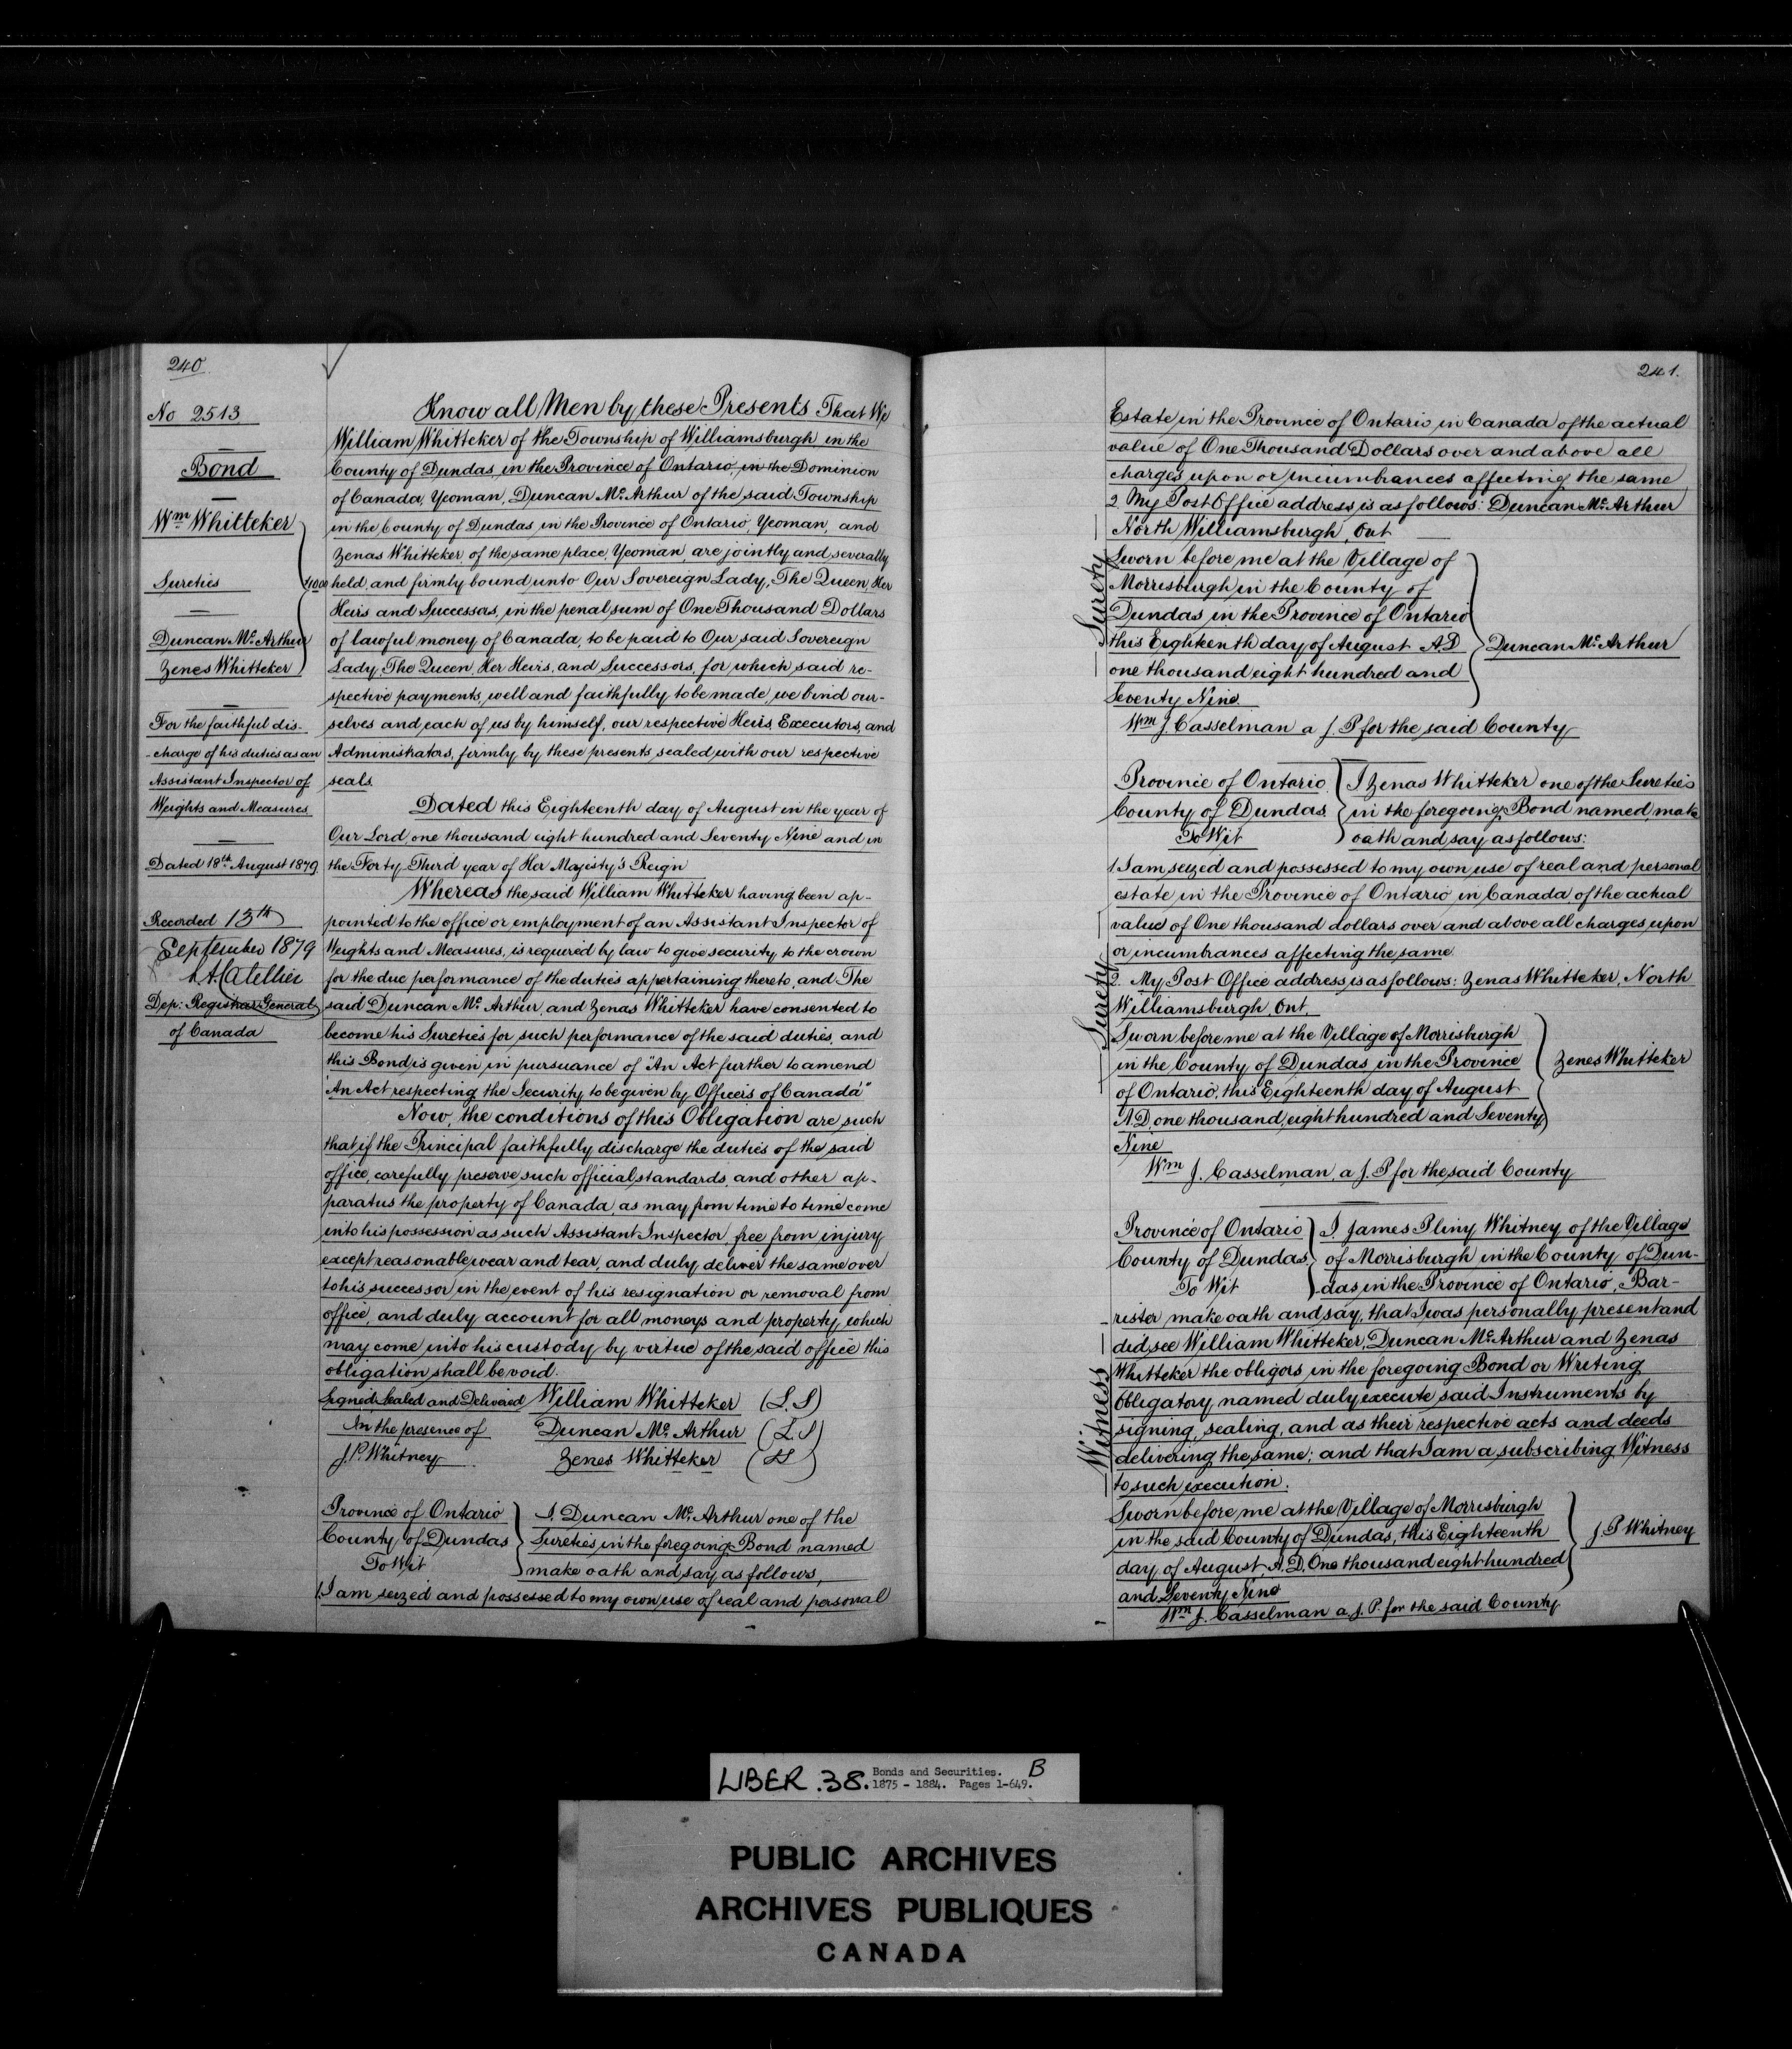 240
No 2513
Bond
Wm Whitteker
Sureties
Duncan Mc. Arthur
Zenes Whitteker
For the faithful dis-
-charge of his duties as an
Assistant Inspector of
Weights and Measures
Dated 18th August 1879
Recorded 13th
September 1879
Dep: Registrar General
of Canada
Know all Men by these Presents That We
William Whitteker of the Township of Williamsburgh in the
County of Dundas, in the Province of Ontario, in the Dominion
of Canada, Yeoman, Duncan Mc. Arthur of the said Township
in the County of Dundas in the Province of Ontario, Yeoman, and
Zenas Whitteker of the same place, Yeoman, are jointly and severally
held, and firmly bound unto Our Sovereign Lady, The Queen, Her
Heirs and Successors, in the penal sum of One Thousand Dollars
of lawful money of Canada, to be paid to Our said Sovereign
Lady, The Queen, Her Heirs, and Successors, for which said re-
spective payments, well and faithfully to be made, we bind our-
selves and each of us by himself, our respective Heirs, Executors, and
Administrators, firmly by these presents sealed with our respective
seals.
Dated this Eighteenth day of August in the year of
Our Lord, one thousand eight hundred and Seventy Nine and in
the Forty Third year of Her Majesty's Reign
Whereas the said William Whitteker having been ap-
pointed to the office or employment of an Assistant Inspector of
Weights and Measures, is required by law to give security to the crown
for the due performance of the duties appertaining thereto, and The
said Duncan Mc. Arthur, and Zenas Whitteker have consented to
become his Sureties for such performance of the said duties, and
this Bond is given in pursuance of "An Act further to amend
"An Act respecting the Security to be given by Officers of Canada"
Now, the conditions of this Obligation are such
that if the Principal faithfully discharge the duties of the said
office, carefully preserve such official standards, and other ap-
paratus the property of Canada, as may from time to time come
into his possession as such Assistant Inspector, free from injury
except reasonable wear and tear, and duly deliver the same over
to his successor in the event of his resignation or removal from
office, and duly account for all moneys and property, which
may come into his custody by virtue of the said office this
obligation shall be void.
Signed, Sealed and Delivered William Whitteker (L.S)
In the presence of Duncan Mc. Arthur (L.S)
J.P. Whitney Zenes Whitteker (LS)
Province of Ontario I, Duncan Mc. Arthur one of the
County of Dundas Sureties in the foregoing Bond named
To Wit make oath and say as follows,
1. I am seized and possessed to my own use of real and personal
241.
Estate in the Province of Ontario in Canada of the actual
value of One Thousand Dollars over and above all
charges upon or incumbrances affecting the same
2 My Post Office address is as follows: Duncan Mc. Arthur
North Williamsburgh, Ont
Surety
Sworn before me at the Village of
Morrisburgh in the County of
Dundas in the Province of Ontario
this Eighteenth day of August A.D Duncan Mc. Arthur
one thousand eight hundred and
Seventy Nine
Wm J. Casselman a J.P for the said County
Province of Ontario I Zenas Whitteker one of the Sureties
County of Dundas in the foregoing Bond named make
To Wit oath and say as follows:
1. I am seized and possessed to my own use of real and personal
estate in the Province of Ontario in Canada of the actual
value of One thousand dollars over and above all charges upon
or incumbrances affecting the same
2. My Post Office address is as follows: Zenas Whitteker, North
Williamsburgh, Ont.
Surety
Sworn before me at the Village of Morrisburgh
in the County of Dundas in the Province Zenes Whitteker
of Ontario, this Eighteenth day of August
A.D, one thousand, eight hundred and Seventy
Nine
Wm J. Casselman, a J.P for the said County
Province of Ontario I, James Pliny Whitney of the Village
County of Dundas of Morrisburgh in the County of Dun-
To Wit das in the Province of Ontario, Bar-
-rister make oath and say, that I was personally present and
did see William Whitteker, Duncan Mc. Arthur and Zenas
Whitteker the obligors in the foregoing Bond or Writing
Obligatory named duly execute said Instruments by
signing, sealing, and as their respective acts and deeds
delivering the same; and that I am a subscribing Witness
to such execution.
Witness
Sworn before me at the Village of Morrisburgh
in the said County of Dundas, this Eighteenth J P Whitney
day of August, A.D, One thousand eight hundred
and Seventy Nine
Wm J. Casselman a J.P. for the said County
LIBER .38. Bonds and Securities. B
1875 - 1884. Pages 1-649.
PUBLIC ARCHIVES
ARCHIVES PUBLIQUES
CANADA